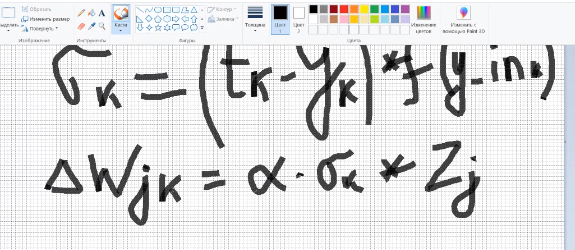 Обрезать
Изменить размер
Повернуть
Изображение
Инструменты
Кисти
Контур
Заливка
Фигуры
Толщина
Цвет 1
Цвет 2
Цвета
Изменение цветов
Изменить с помощью Paint 3D
σk = (tk - yk) * f (y_ink)
ΔWjk = α · σk * Zj